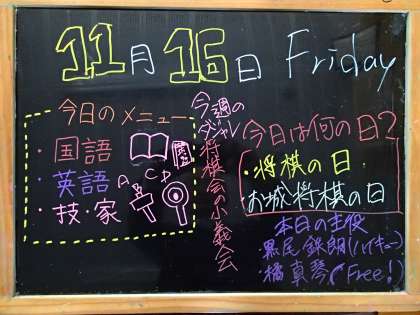 11月16日 Friday
今日のメニュー
・国語
・英語 ABCD
・技・家
今週のダジャレ
将棋会の小義会
今日は何の日?
・将棋の日
・お城将棋の日
本日の主役
黒尾 鉄朗(ハイキュー)
橘 真琴(Free!)